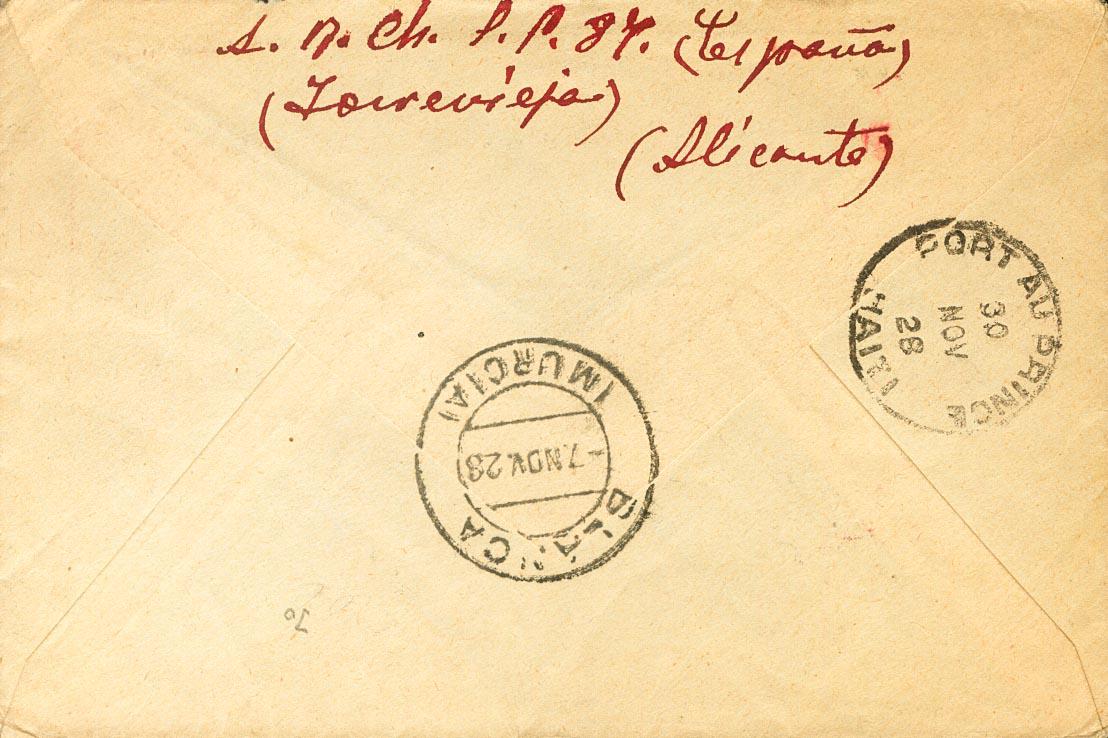 A. R. Ch. S. P. 37. (España)
(Torrevieja)
(Alicante)
PORT AU PRINCE
30
NOV
28
HAITI
BLANCA
-7.NOV.28
(MURCIA)